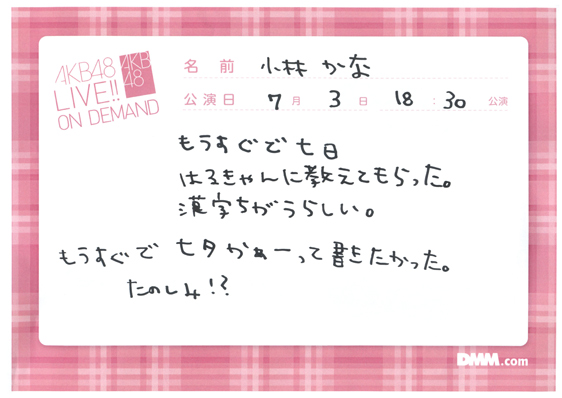 AKB48
LIVE!!
ON DEMAND
AKB
48
名前 小林 かな
公演日 7月 3日 18:30 公演
もうすぐで 七日
はるきゃんに教えてもらった。
漢字ちがうらしい。
もうすぐで 七夕かぁーって書きたかった。
たのしみ!?
DMM.com